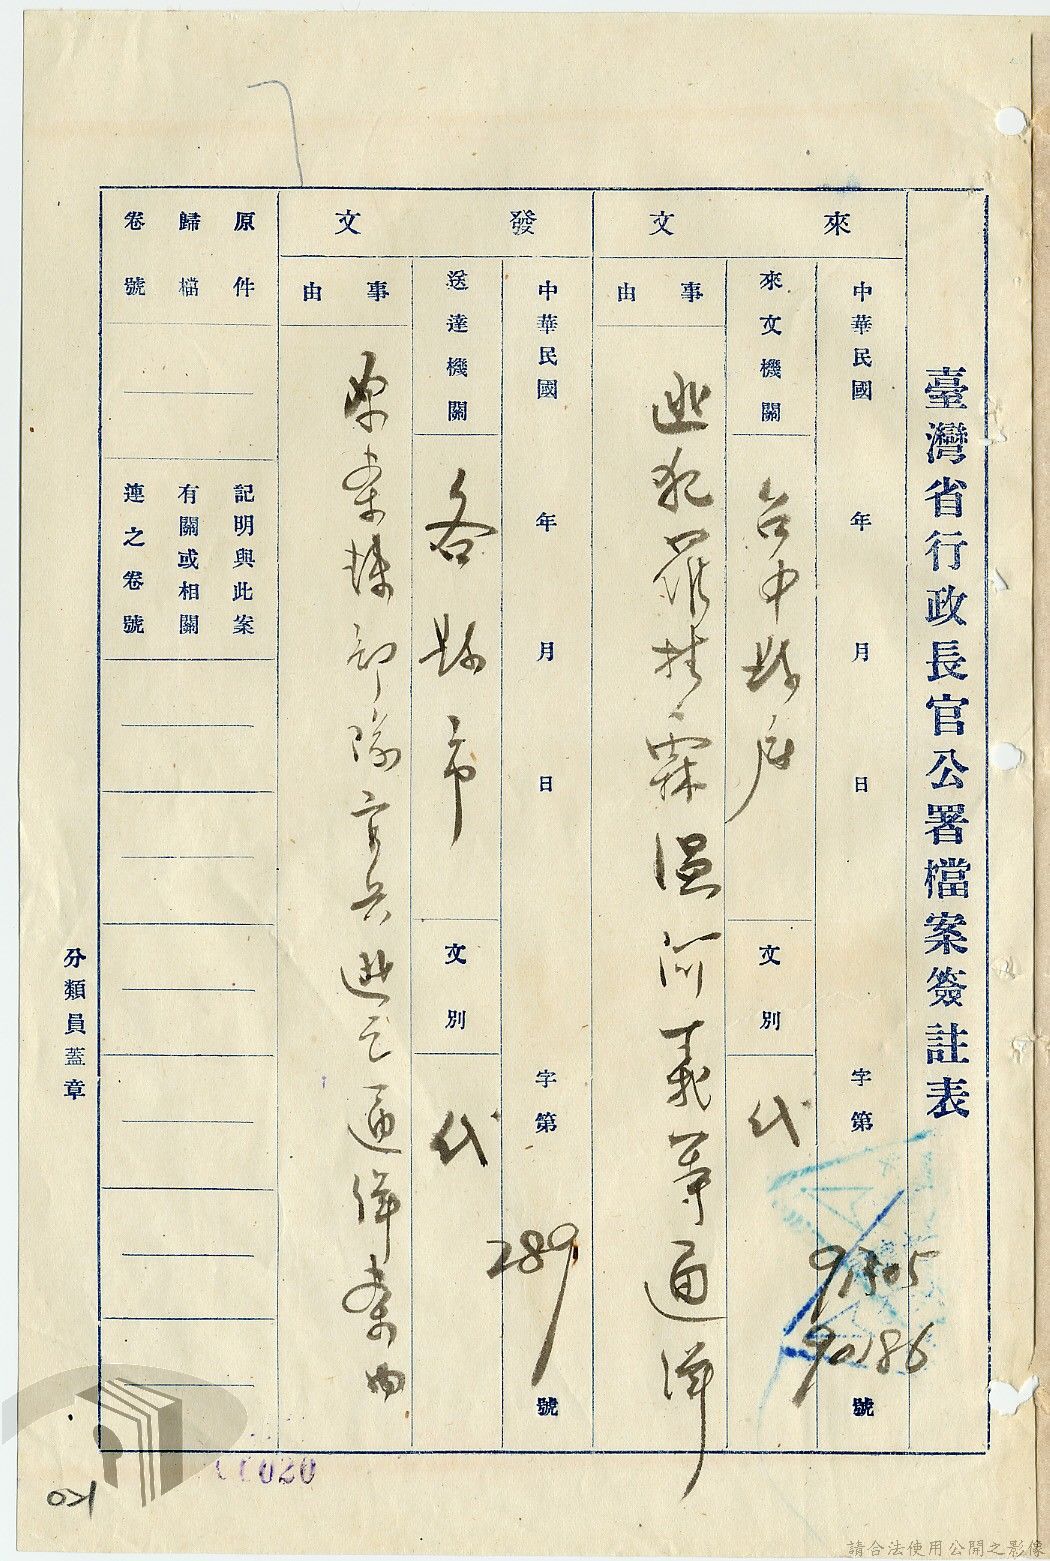 臺灣省行政長官公署檔案簽註表
來文
中華民國 年 月 日 字第 91305 90186 號
來文機關 台中縣府 文別 代
事由 逃犯 霖 溫 義等通緝
發文
中華民國 年 月 日 字第 289 號
送達機關 各縣市 文別 代
事由 部隊官兵逃亡通緝案內
原件歸檔卷號
記明與此案有關或相關連之卷號
分類員蓋章
020
OK
請合法使用公開之影像